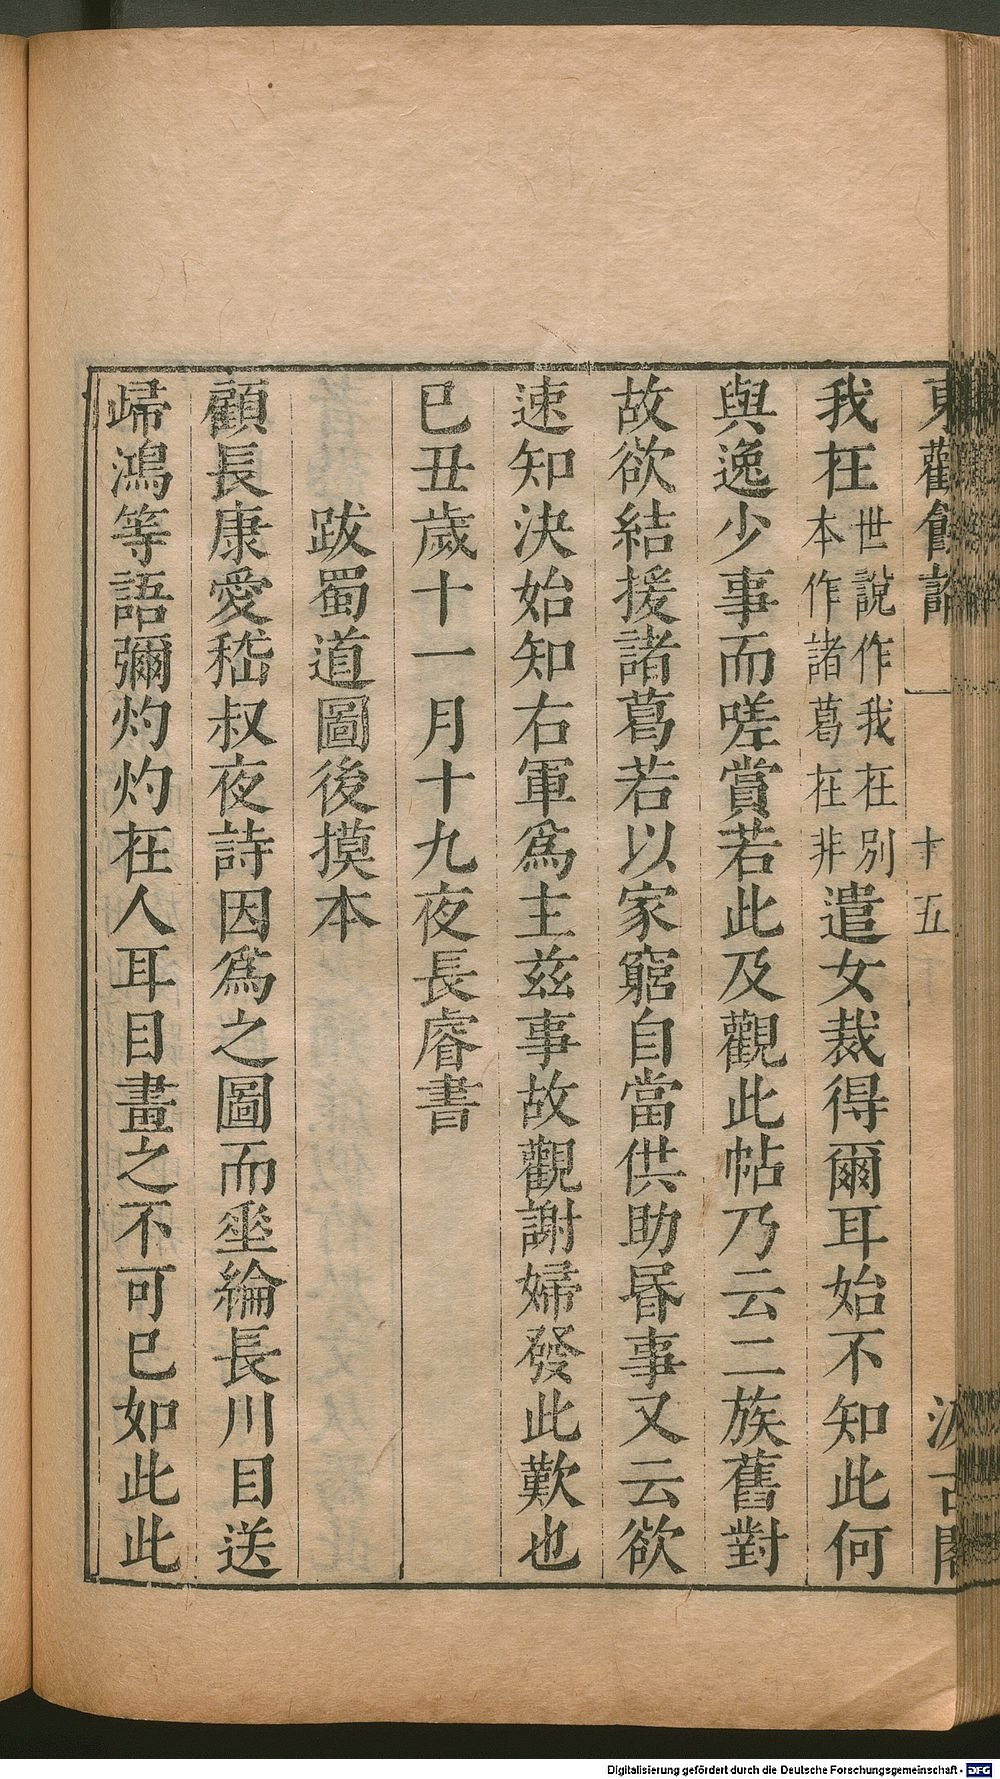 東觀餘論 一 十五 汲古閣
我在世說作我在別本作諸葛在非遣女裁得爾耳始不知此何
與逸少事而嗟賞若此及觀此帖乃云二族舊對
故欲結援諸葛若以家窮自當供助昏事又云欲
速知決始知右軍為主茲事故觀謝婦發此歎也
已丑歲十一月十九夜長睿書
跋蜀道圖後摸本
顧長康愛嵇叔夜詩因為之圖而坐綸長川目送
歸鴻等語彌灼灼在人耳目畫之不可已如此此
Digitalisierung gefördert durch die Deutsche Forschungsgemeinschaft - DFG